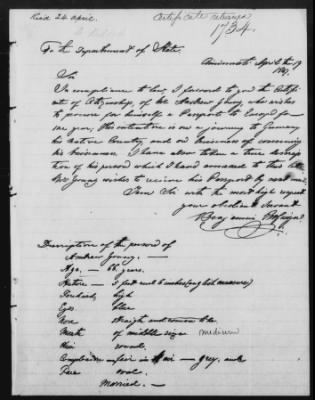 Recd 24 April.
Certificate returned
1734
To the Department of State
Cincinnati April the 19
1861.
Sir
In compliance to law, I forward to you the Certifi-
cate of Citizenship, of Mr Andrew Young, who wishes
to procure for himself a Passport to Europe for
one year; His intention is on a journey to Germany
his Native Country, and on business of concerning
his businesses. I have also taken a true descrip-
tion of his person which I hand annexed to this letter
Mr Young wishes to receive his Passport by
I am Sir with the most high respect
your obedient Servant
Benjamin
Description of the person of
Andrew Young. —
Age, — 66 years.
Stature — 5 feet and 6 inches (english measures)
Forehead, high
Eyes blue
Nose straight and
Mouth of middle size medium
Chin round.
Complexion — fair — Hair — grey, and
Face oval.
Married. —